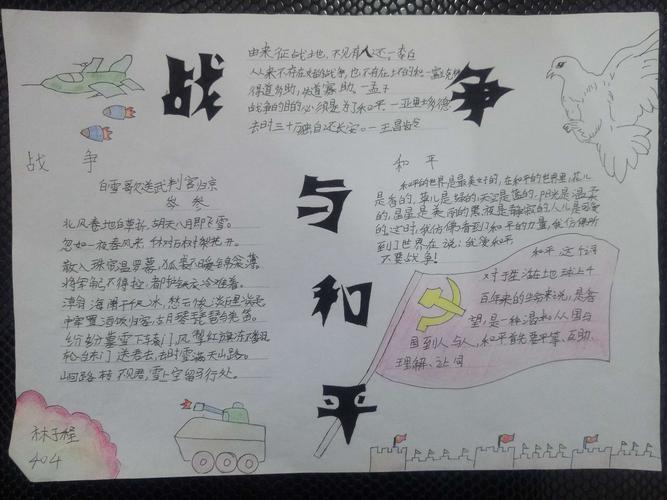 战争与和平
由来征战地,不见有人还。—李白
从来不存在好的战争,也不存在坏的和
得道多助,失道寡助。—孟子
战争的目的必须是为了和平—亚里斯多德
去时三十万,独自还长安。—王昌龄
战 争
白雪歌送武判官归京
岑 参
北风卷地白草折,胡天八月即飞雪。
忽如一夜春风来,千树万树梨花开。
散入珠帘湿罗幕,狐裘不暖锦衾薄。
将军角弓不得控,都护铁衣冷难着。
瀚海阑干百丈冰,愁云惨淡万里凝。
中军置酒饮归客,胡琴琵琶与羌笛。
纷纷暮雪下辕门,风掣红旗冻不翻。
轮台东门送君去,去时雪满天山路。
山回路转不见君,雪上空留马行处。
和 平
和平的世界是最美好的,在和平的世界里,花儿
是香的,草儿是绿的,天空是蓝的,阳光是温柔
的,星星是美丽的,黑夜是静寂的,人儿是可爱
的。这时,我仿佛看到了和平的力量,我仿佛听
到了世界在说:我爱和平
不要战争!
和平 这个词
对于生活在地球上千
百年来的生命来说,是希
望,是一种温和,从国与
国到人与人,和平首先要平等、互助、
理解、让同
林子程
404